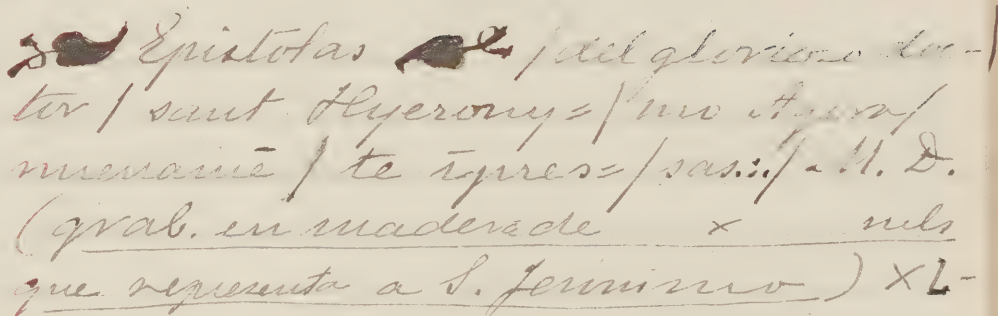 Epistolas / del glorioso doc-/
tor / sant Hyerony=/mo Agora/
nueuamē / te īpres=/sas.:./. M. D.
(grab. en madera de x
que representa a S. Jerónimo) XL-